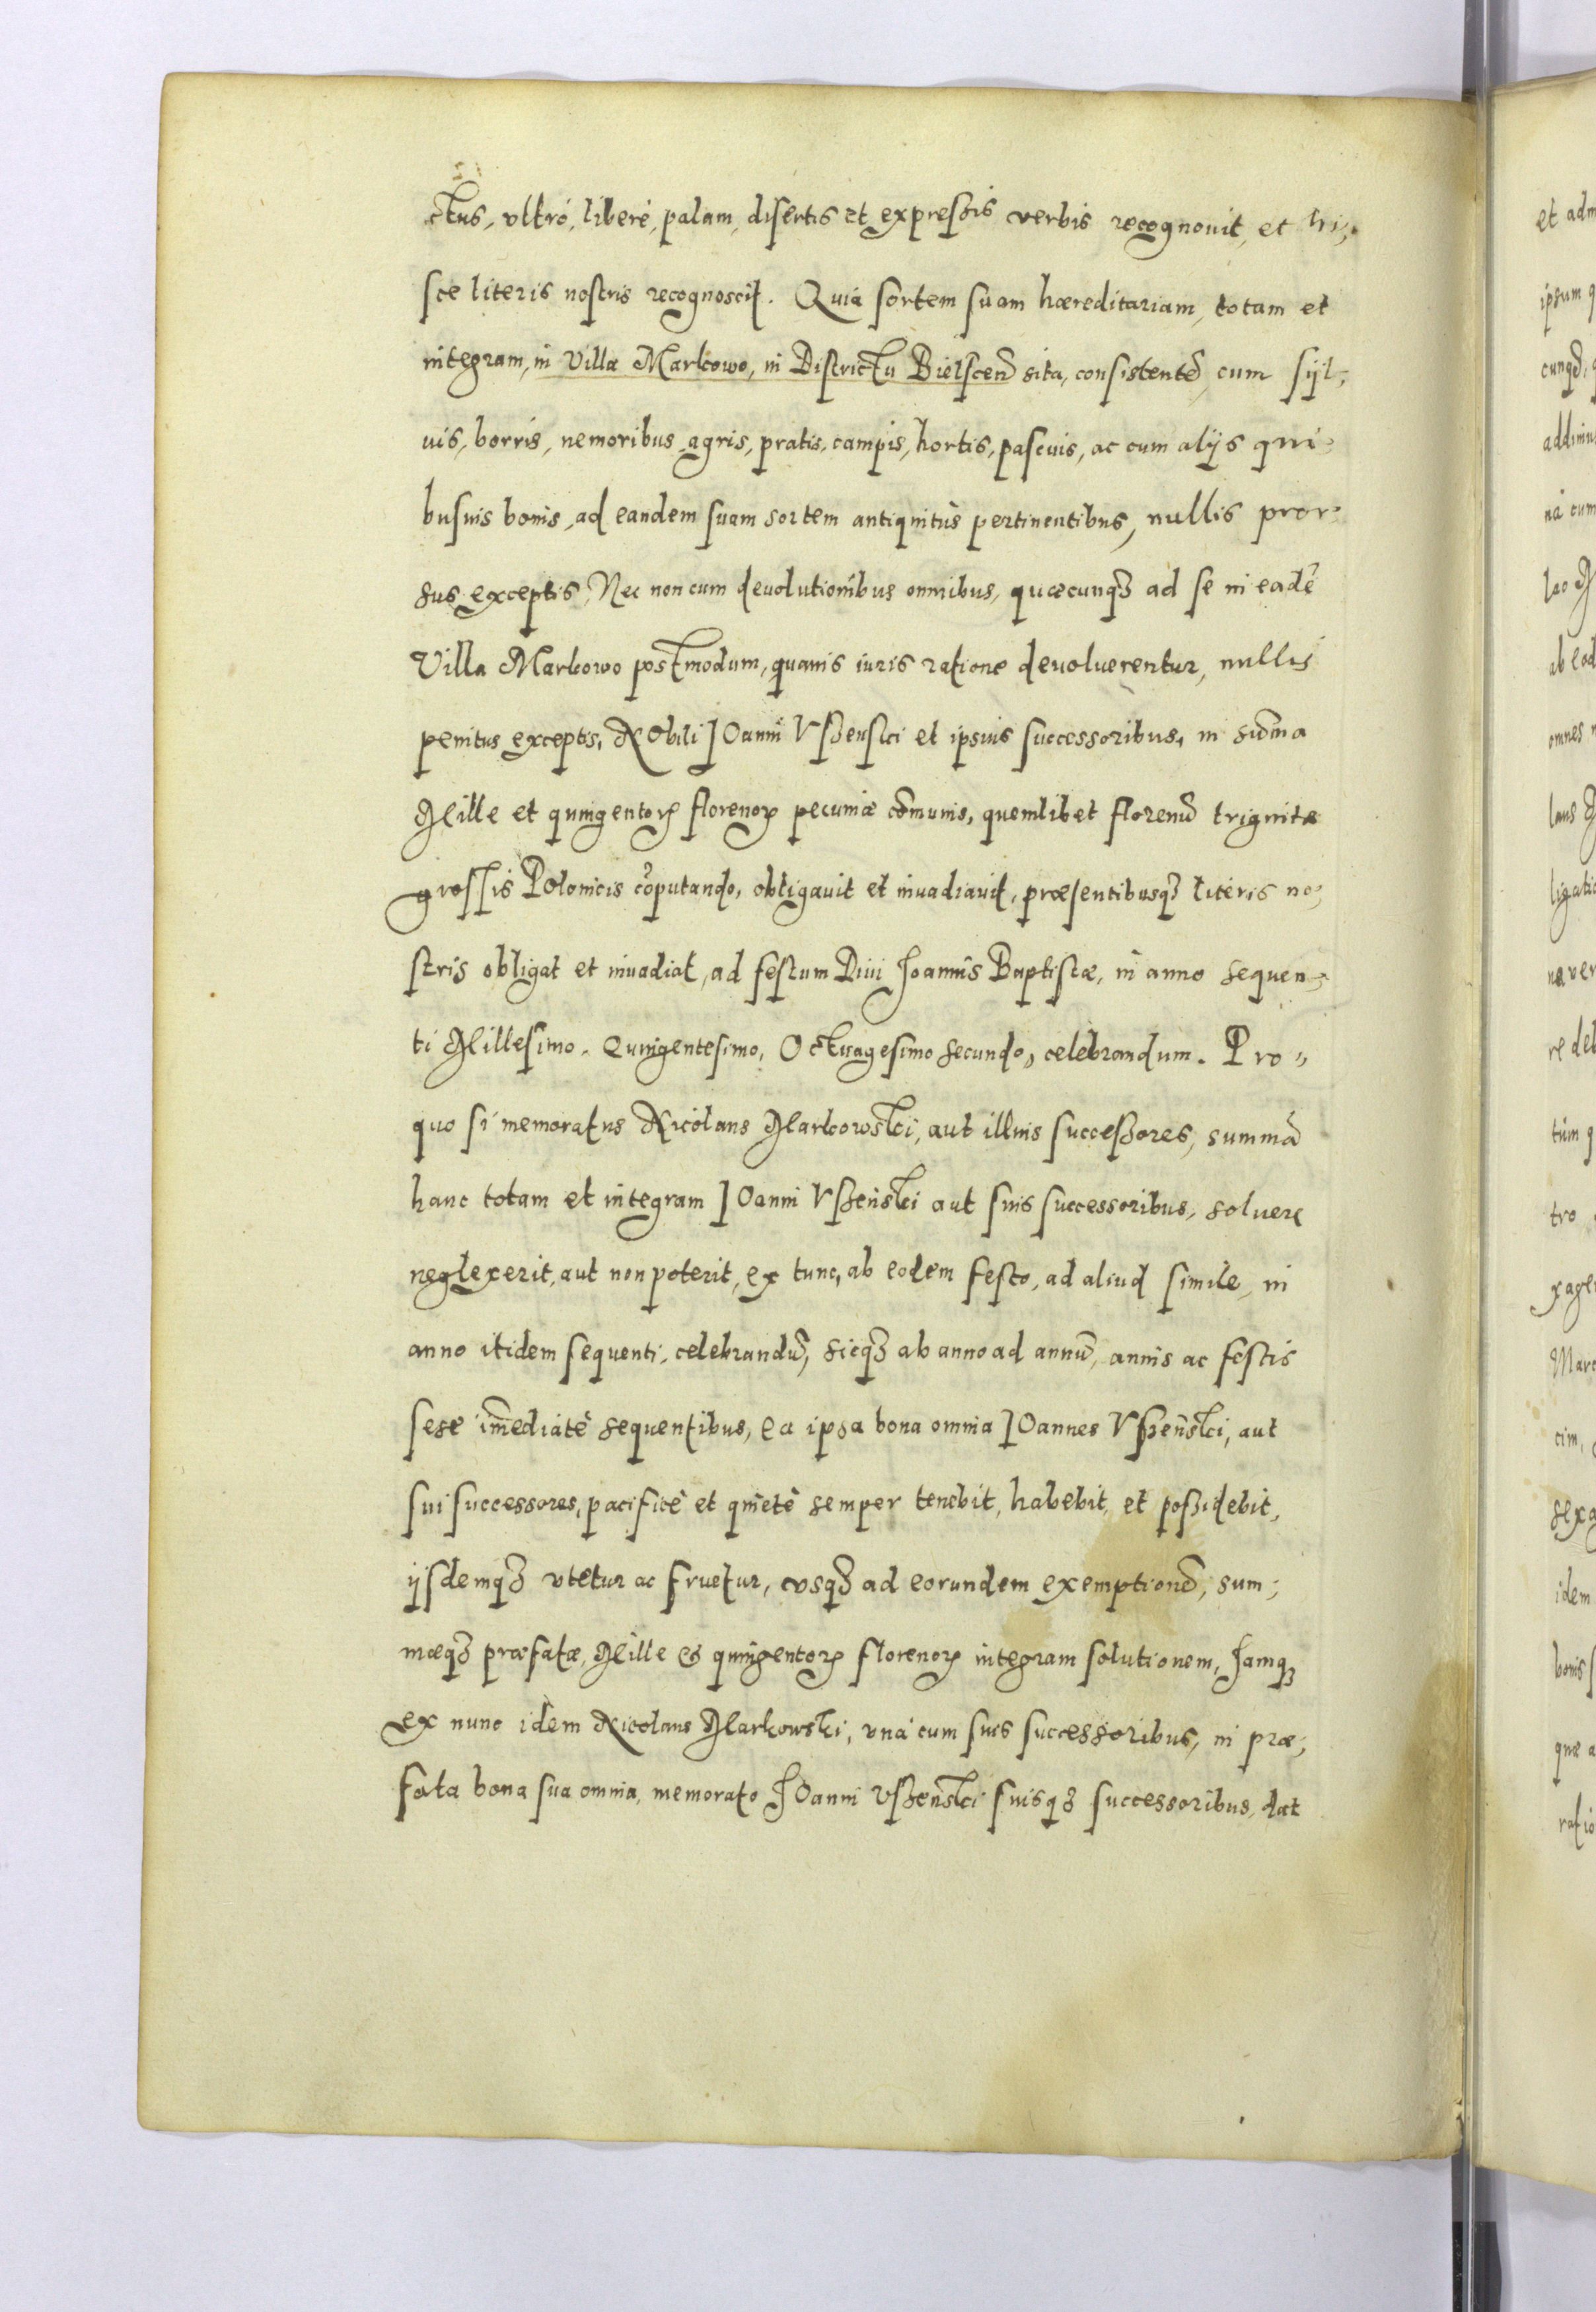 ctus, vltró, liberè, palam, disertis et expressis verbis recognouit, et hi,
sce literis nostris recognoscit. Quia sortem suam hæreditariam, totam et
integram, in Villa Markowo, in Districtu Bielscen̄ sita, consistentē, cum syl,
uis, borris, nemoribus, agris, pratis, campis, hortis, pascuis, ac cum alijs qui,
busuis bonis, ad eandem suam sortem antiquitùs pertinentibus, nullis pror,
sus exceptis, Nec non cum deuolutionibus omnibus, quæcunqꝫ ad se in eadē
Villa Markowo postmodum, quauis iuris ratione deuoluerentur, nullis
penitus exceptis, Nobili IOanni Vßenski et ipsius successoribus, in sum̄a
Mille et quingentorꝝ florenorꝝ pecuniæ com̄unis, quemlibet florenū triginta
grossis Polonicis cōputando, obligauit et inuadiauit, præsentibusqꝫ literis no,
stris obligat et inuadiat, ad festum Diui Joannis Baptistæ, in anno sequen,
ti Millesimo, Quingentesimo, Octuagesimo secundo, celebrandum. Pro,
quo si memoratus Nicolaus Markowski, aut illius successores, summā
hanc totam et integram IOanni Vßenski aut suis successoribus, soluere
neglexerit, aut non poterit, ex tunc, ab eodem festo, ad aliud simile, in
anno itidem sequenti, celebrandū, sicqꝫ ab anno ad annū, annis ac festis
sese im̄ediatè sequentibus, ea ipsa bona omnia IOannes Vßenski, aut
sui successores, pacificè et quietè semper tenebit, habebit, et possidebit,
ijsdemqꝫ vtetur ac fruetur, vsqꝫ ad eorundem exemptionē, sum,
mæqꝫ præfatæ, Mille & quingentorꝝ florenorꝝ integram solutionem, Jamqꝫ
ex nunc idem Nicolaus Markowski, vnà cum suis successoribus, in præ,
fata bona sua omnia, memorato JOanni Vßenski suisqꝫ successoribus, dat
et adm
ipsum q
cunqꝫ,
addimus
na cum
leo M
ab eod
omnes
laus M
ligatio
na ver
re deb
tùm q
tro
xage
Marc
cim,
sexa
idem
bonis s
quæ a
ratio